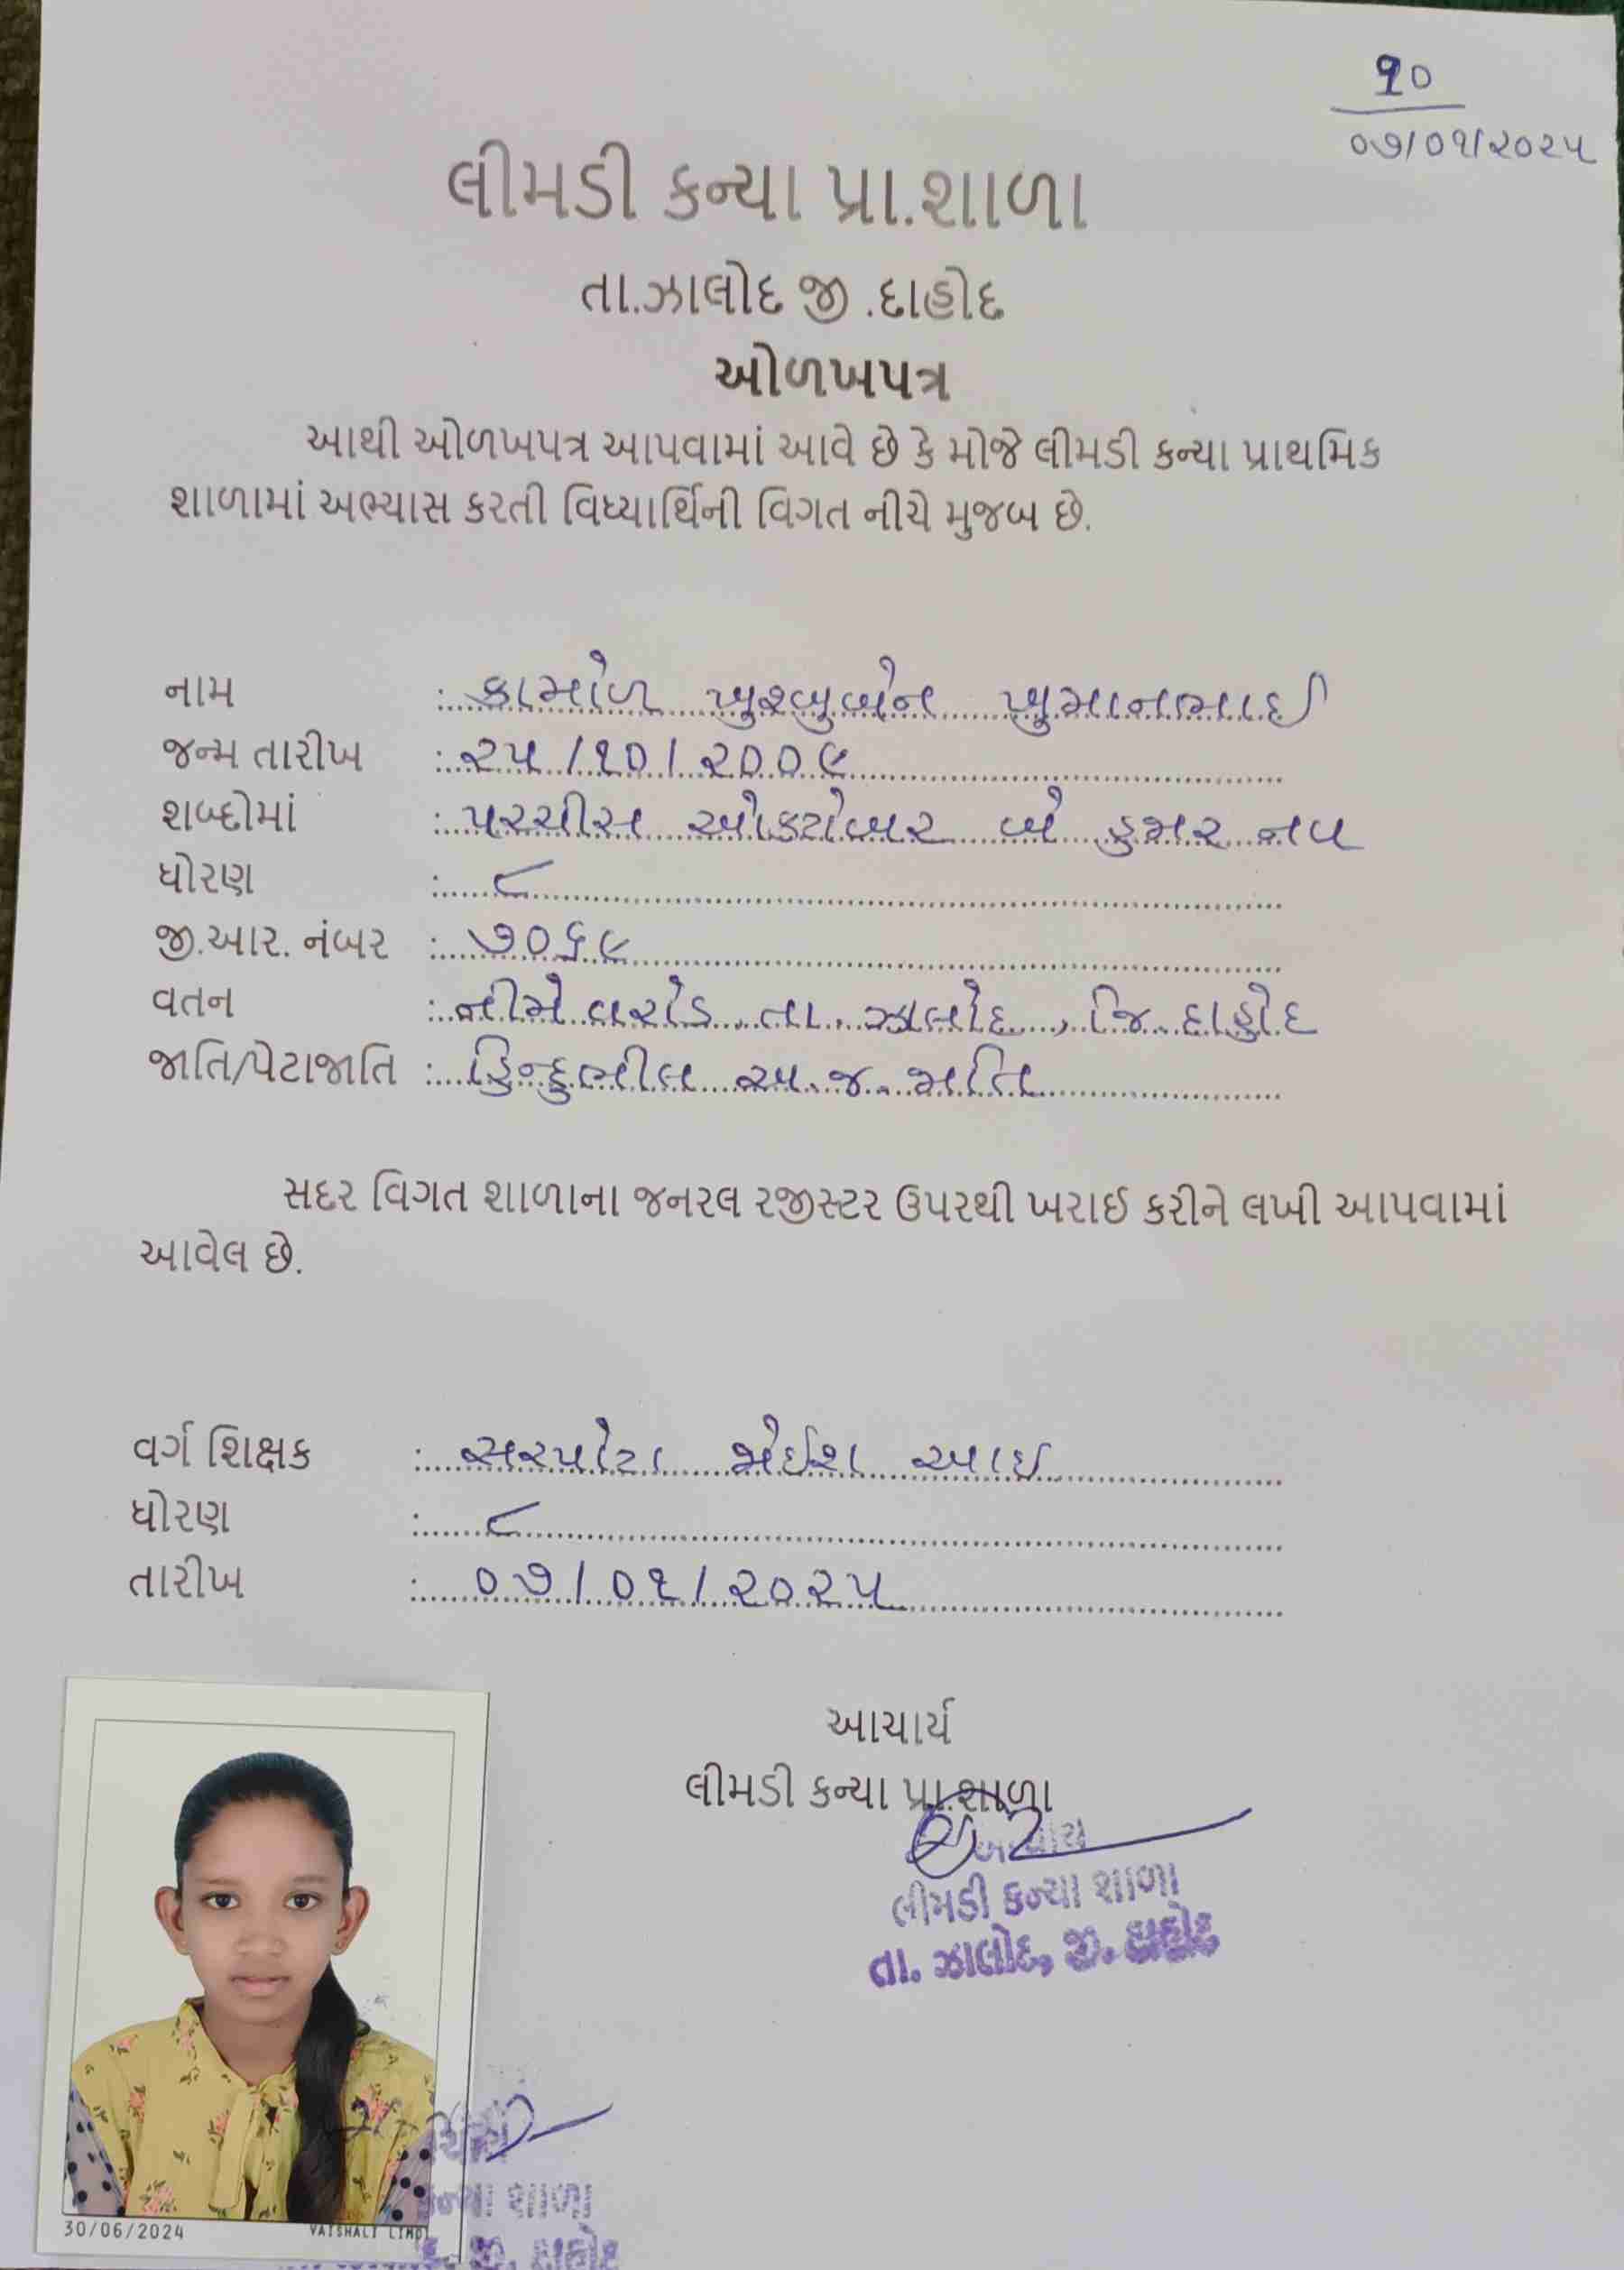 ૧૦
૦૭/૦૧/૨૦૨૫
લીમડી કન્યા પ્રા.શાળા
તા.ઝાલોદ જી .દાહોદ
ઓળખપત્ર
આથી ઓળખપત્ર આપવામાં આવે છે કે મોજે લીમડી કન્યા પ્રાથમિક
શાળામાં અભ્યાસ કરતી વિધ્યાર્થિની વિગત નીચે મુજબ છે.
નામ : કામોળ ખુશ્બુબેન ખુમાનભાઈ
જન્મ તારીખ : ૨૫/૧૦/૨૦૦૯
શબ્દોમાં : પચ્ચીસ ઓક્ટોબર બે હજાર નવ
ધોરણ : ૮
જી.આર. નંબર : ૭૦૬૯
વતન : નીમેવરોડ, તા. ઝાલોદ, જિ. દાહોદ
જાતિ/પેટાજાતિ : હિન્દુભીલ અ.જ.જાતિ
સદર વિગત શાળાના જનરલ રજીસ્ટર ઉપરથી ખરાઈ કરીને લખી આપવામાં
આવેલ છે.
વર્ગ શિક્ષક : સરપોટા જેઈશ આઇ
ધોરણ : ૮
તારીખ : ૦૭/૦૧/૨૦૨૫
આચાર્ય
લીમડી કન્યા પ્રા.શાળા
આચાર્ય
લીમડી કન્યા શાળા
તા. ઝાલોદ, જી. દાહોદ
30/06/2024 VAISHALI LIMDI